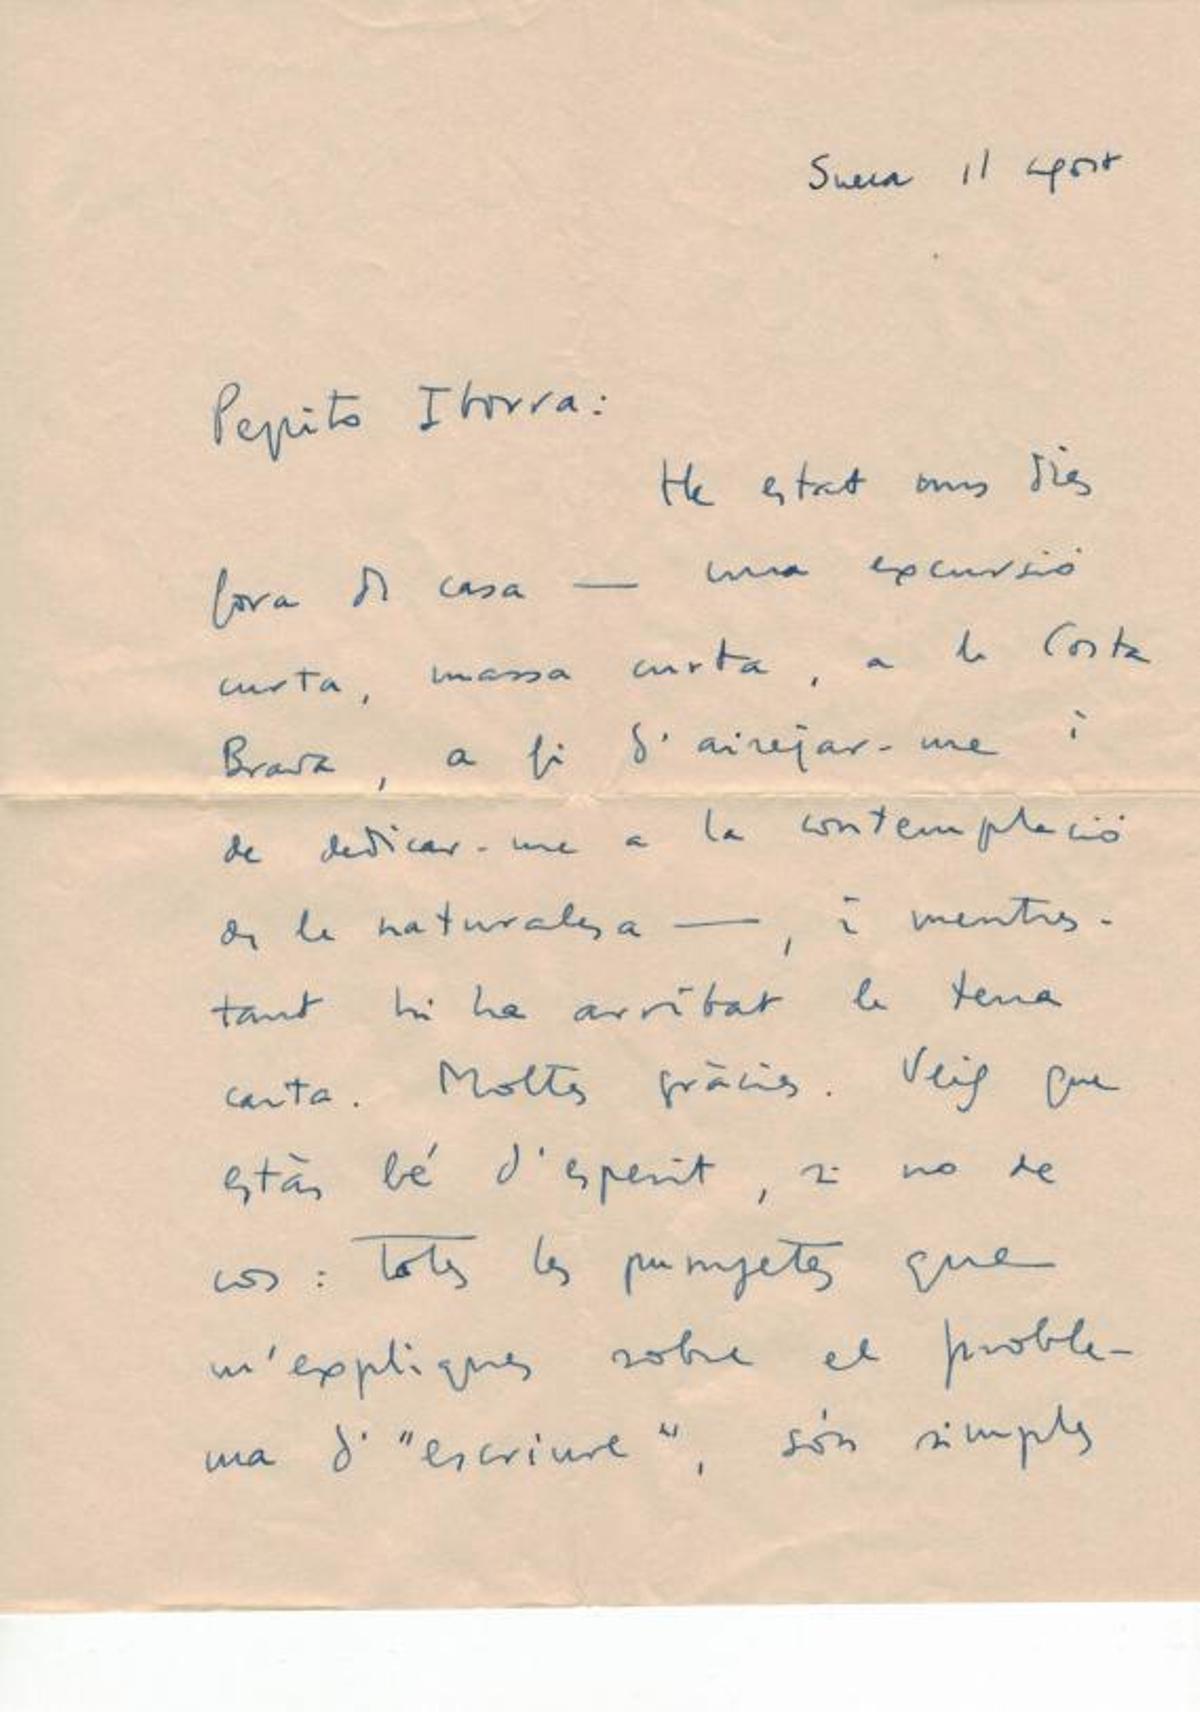 Sueca 11 agost
Pepito Iborra:
He estat uns dies
fora de casa — una excursió
curta, massa curta, a la Costa
Brava, a fi d'airejar-me i
de dedicar-me a la contemplació
de la naturalesa —, i mentres-
tant hi ha arribat la teua
carta. Moltes gràcies. Veig que
estàs bé d'esperit, si no de
cos: totes les punyetes que
m'expliques sobre el proble-
ma d'"escriure", són simples